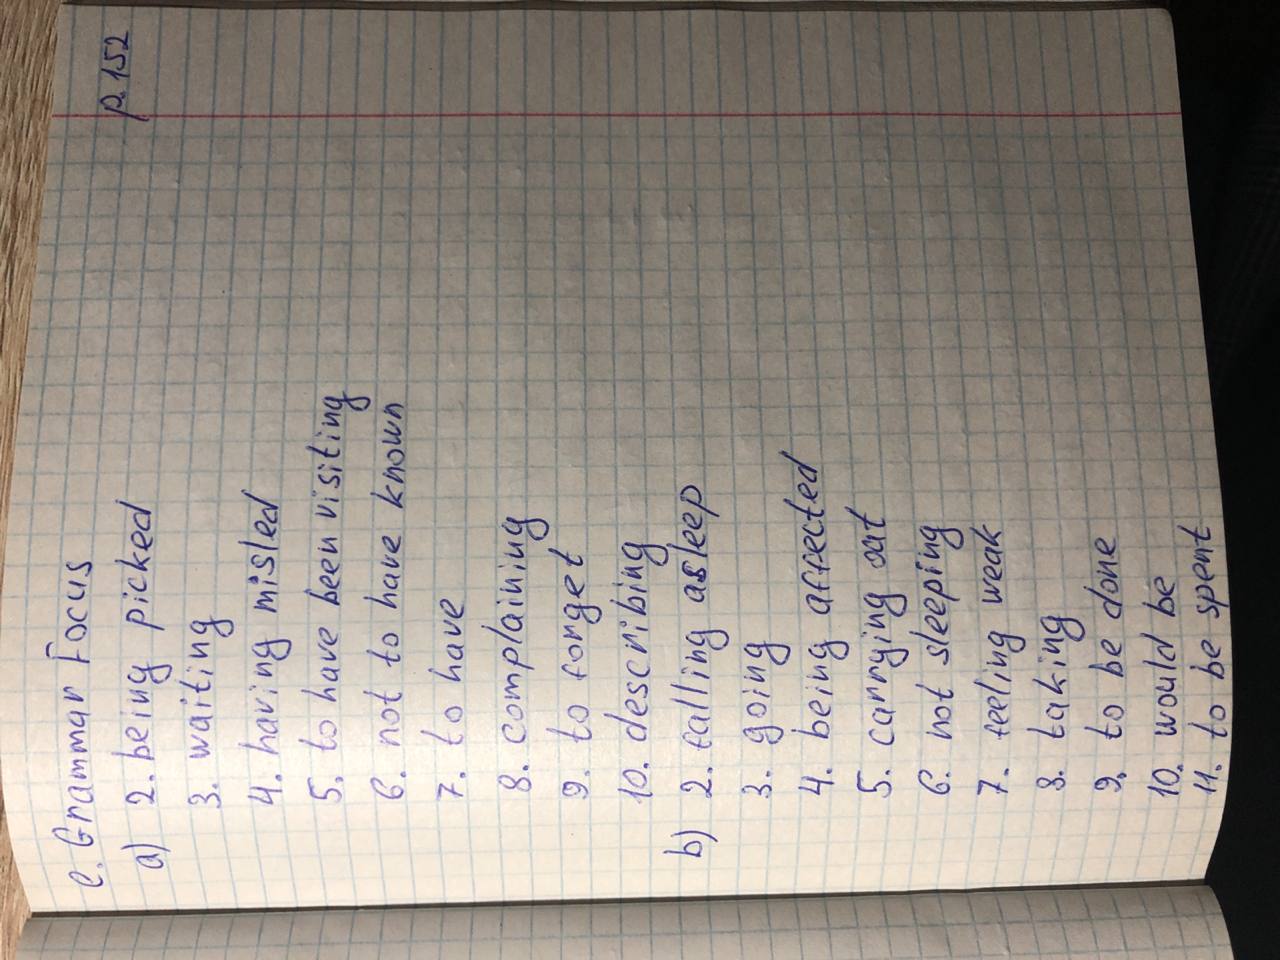 p.152
e. Grammar Focus
a) 2. being picked
3. waiting
4. having misled
5. to have been visiting
6. not to have known
7. to have
8. complaining
9. to forget
10. describing
b) 2. falling asleep
3. going
4. being affected
5. carrying out
6. not sleeping
7. feeling weak
8. taking
9. to be done
10. would be
11. to be spent